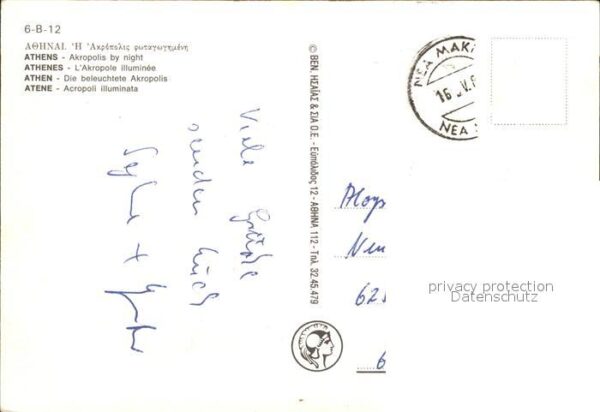 6-B-12
ΑΘΗΝΑΙ. Ἡ Ἀκρόπολις φωταγωγημένη
ATHENS - Akropolis by night
ATHENES - L'Akropole illuminée
ATHEN - Die beleuchtete Akropolis
ATENE - Acropoli illuminata
Viele Grüße
senden Euch
+
© ΒΕΝ. ΗΣΑΪΑΣ & ΣΙΑ Ο.Ε. - Ευπόλιδος 12 - ΑΘΗΝΑ 112 - Τηλ. 32.45.479
ΝΕΑ ΜΑΚ
16 .V.
ΝΕΑ
Aloys
Neu
62
6
privacy protection
Datenschutz